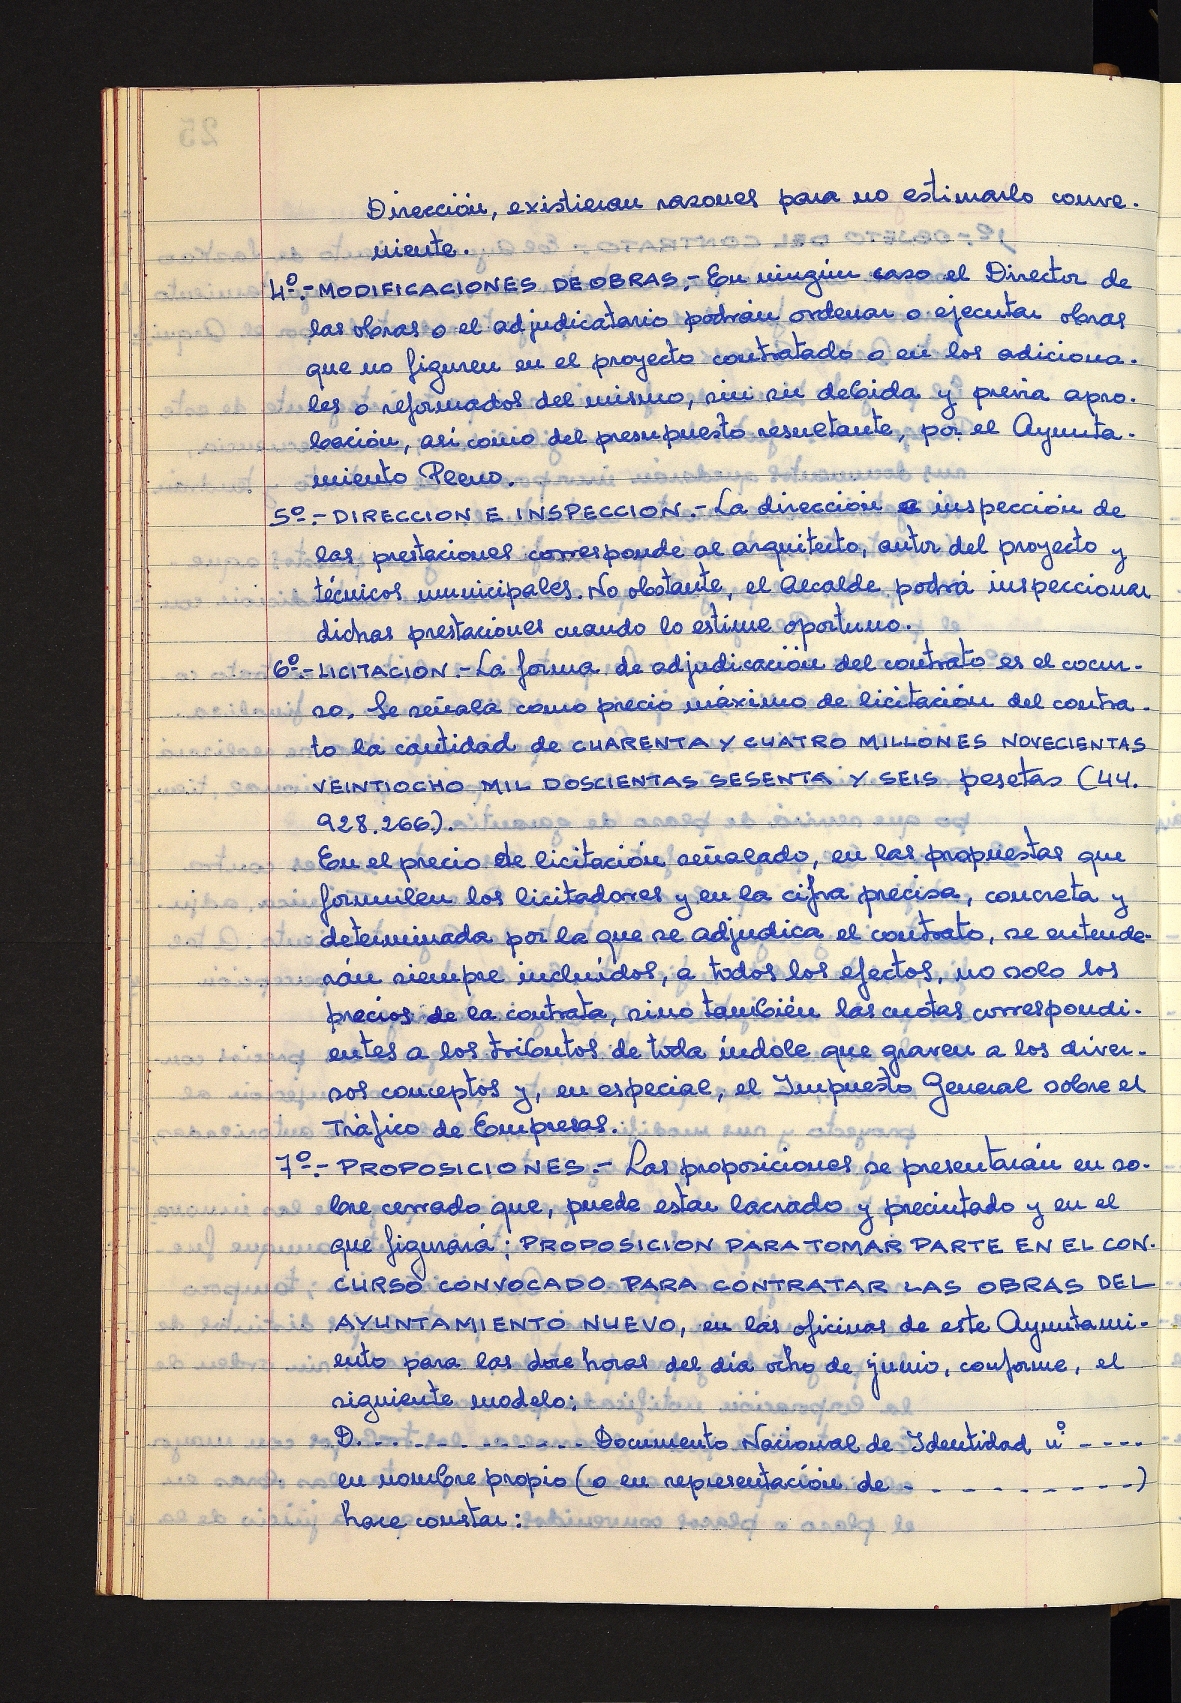 Dirección, existieran razones para no estimarlo conve-
niente.
4º.- MODIFICACIONES DE OBRAS.- En ningún caso el Director de
las obras o el adjudicatario podrán ordenar o ejecutar obras
que no figuren en el proyecto contratado o en los adiciona-
les o reformados del mismo, sin su debida y previa apro-
bación, así como del presupuesto resultante, por el Ayunta-
miento Pleno.
5º.- DIRECCION E INSPECCION.- La dirección e inspección de
las prestaciones corresponde al arquitecto, autor del proyecto y
técnicos municipales. No obstante, el Alcalde podrá inspeccionar
dichas prestaciones cuando lo estime oportuno.
6º.- LICITACION.- La forma de adjudicación del contrato es el cocur-
so. Se señala como precio máximo de licitación del contra-
to la cantidad de CUARENTA Y CUATRO MILLONES NOVECIENTAS
VEINTIOCHO MIL DOSCIENTAS SESENTA Y SEIS pesetas (44.
928.266).
En el precio de licitación señalado, en las propuestas que
formulen los licitadores y en la cifra precisa, concreta y
determinada por la que se adjudica el contrato, se entende-
rán siempre incluídos, a todos los efectos, no solo los
precios de la contrata, sino también las cuotas correspondi-
entes a los tributos de toda índole que graven a los diver-
sos conceptos y, en especial, el Impuesto General sobre el
Tráfico de Empresas.
7º.- PROPOSICIONES.- Las proposiciones se presentarán en so-
bre cerrado que, puede estar lacrado y precintado y en el
que figurará: PROPOSICION PARA TOMAR PARTE EN EL CON-
CURSO CONVOCADO PARA CONTRATAR LAS OBRAS DEL
AYUNTAMIENTO NUEVO, en las oficinas de este Ayuntami-
ento para las doce horas del día ocho de junio, conforme, el
siguiente modelo:
D. - - - - - - - - - - - - Documento Nacional de Identidad nº - - - -
en nombre propio (o en representación de - - - - - - - - - -)
hace constar: